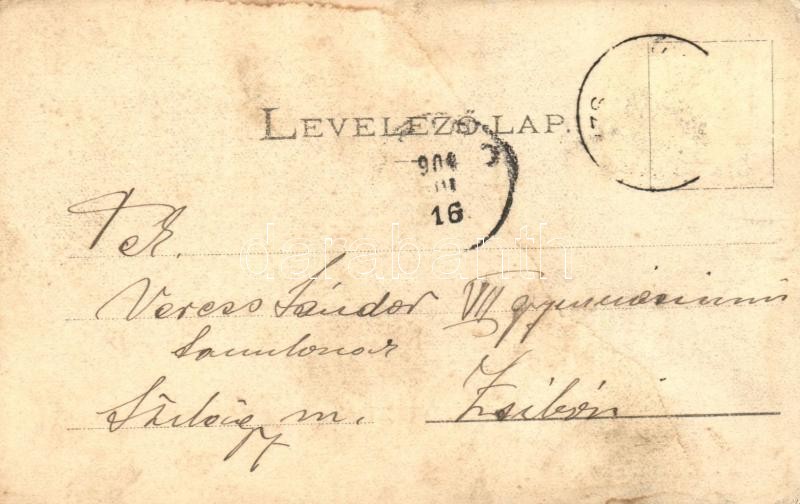 LEVELEZŐ LAP.
904
III
16
Tek.
Veress Sándor VII gymnásiumi
tanulónak
Zsibón
Szilágy m.
darabanth